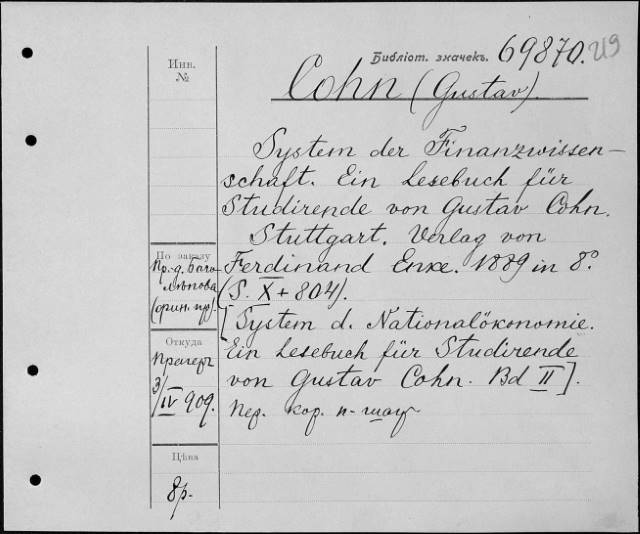 Библіот. значекъ. 69870.
Cohn (Gustav).
Инв.
№
System der Finanzwissen-
schaft. Ein Lesebuch für
Studirende von Gustav Cohn.
Stuttgart. Verlag von
Ferdinand Enke. 1889 in 8º
(S. X + 804).
[System d. Nationalökonomie.
Ein Lesebuch für Studirende
von Gustav Cohn. Bd II].
Пер. кор. п-
По заказу
Пр.-д. Бого-
лѣпова
(фин. пр).
Откуда
Прагеръ
3/IV 909.
Цѣна
8р.